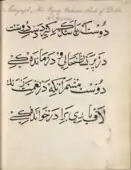 Autograph of His
دوست آن که گیرد دست دوست
در پریشان حالی و درماندگی
دوست مشمار آنکه در نعمت زند
لاف یاری و برادر خواندگی